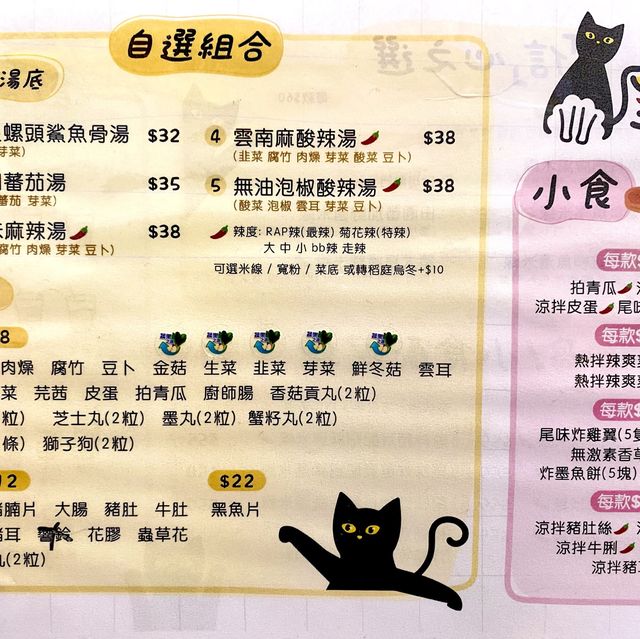 自選組合
湯底
螺頭鯊魚骨湯 $32
芽菜)
4 雲南麻酸辣湯 $38
(韭菜 腐竹 肉燥 芽菜 酸菜 豆卜)
蕃茄湯 $35
蕃茄 芽菜)
5 無油泡椒酸辣湯 $38
(酸菜 泡椒 雲耳 芽菜 豆卜)
麻辣湯 $38
腐竹 肉燥 芽菜 豆卜)
辣度: RAP辣(最辣) 菊花辣(特辣)
大 中 小 bb辣 走辣
可選米線 / 寬粉 / 菜底 或轉稻庭烏冬+$10
8
肉燥 腐竹 豆卜 金菇 生菜 韭菜 芽菜 鮮冬菇 雲耳
菜 芫茜 皮蛋 拍青瓜 廚師腸 香菇貢丸(2粒)
粒) 芝士丸(2粒) 墨丸(2粒) 蟹籽丸(2粒)
條) 獅子狗(2粒)
12
腩片 大腸 豬肚 牛肚
豬耳 響鈴 花膠 蟲草花
丸(2粒)
$22
黑魚片
小食
每款$
拍青瓜
涼拌皮蛋 尾味
每款$
熱拌辣爽
熱拌辣爽
每款$
尾味炸雞翼(5隻
無激素香草
炸墨魚餅(5塊)
每款$
涼拌豬肚絲
涼拌牛脷
涼拌豬